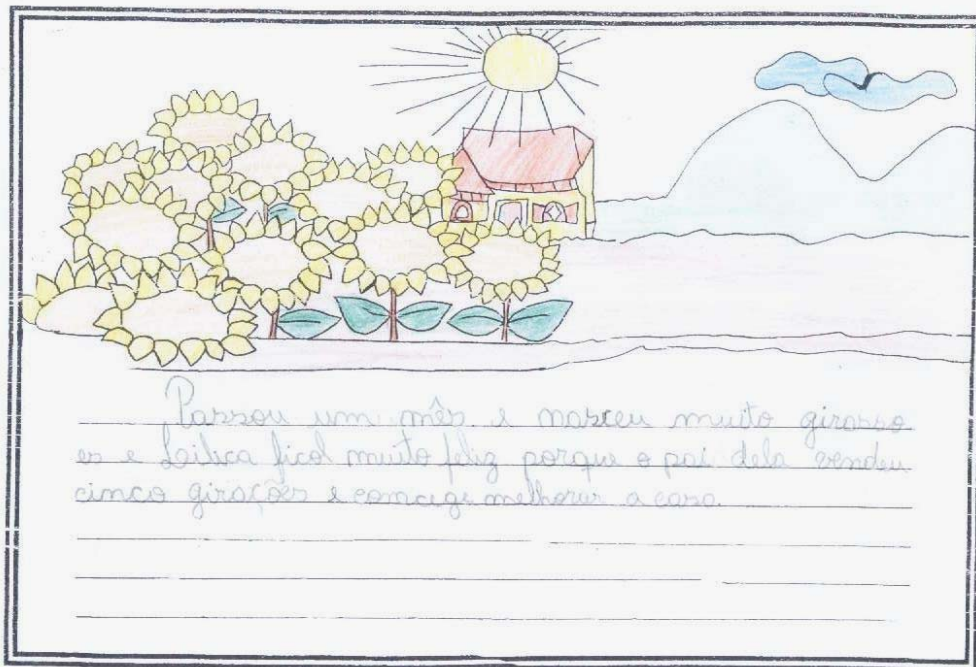 Passou um mês e nasceu muito girasso
es e Leilica ficol muito feliz porque o pai dela vendeu
cinco girações e concege melhorar a casa.